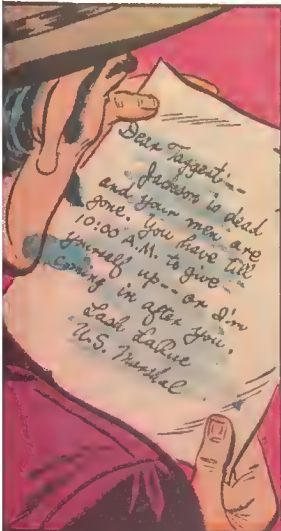 Dear Taggert--
Jackson is dead
and your men are
gone. You have till
10:00 A.M. to give
yourself up -- or I'm
coming in after you.
Lash LaRue
U.S. Marshal